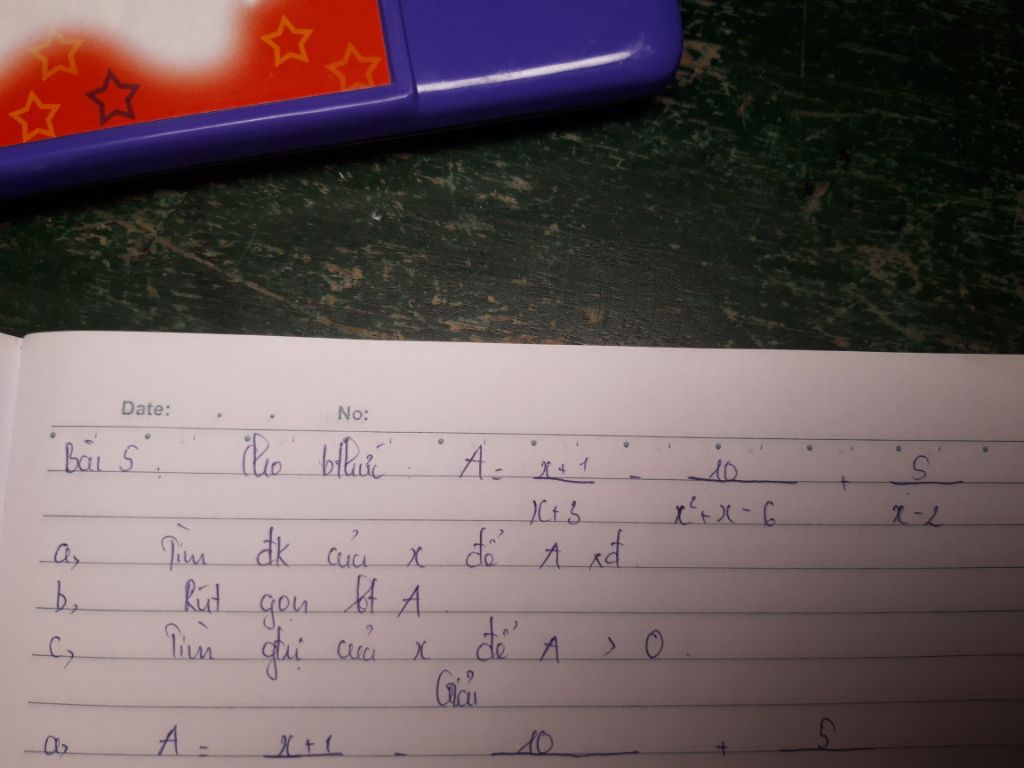 Date: No:
Bài 5. Cho bthức A = x+1/x+3 - 10/x²+x-6 + 5/x-2
a, Tìm đk của x để A xđ
b, Rút gọn bt A.
c, Tìm gtrị của x để A > 0.
Giải
a, A = x+1 - 10 + 5